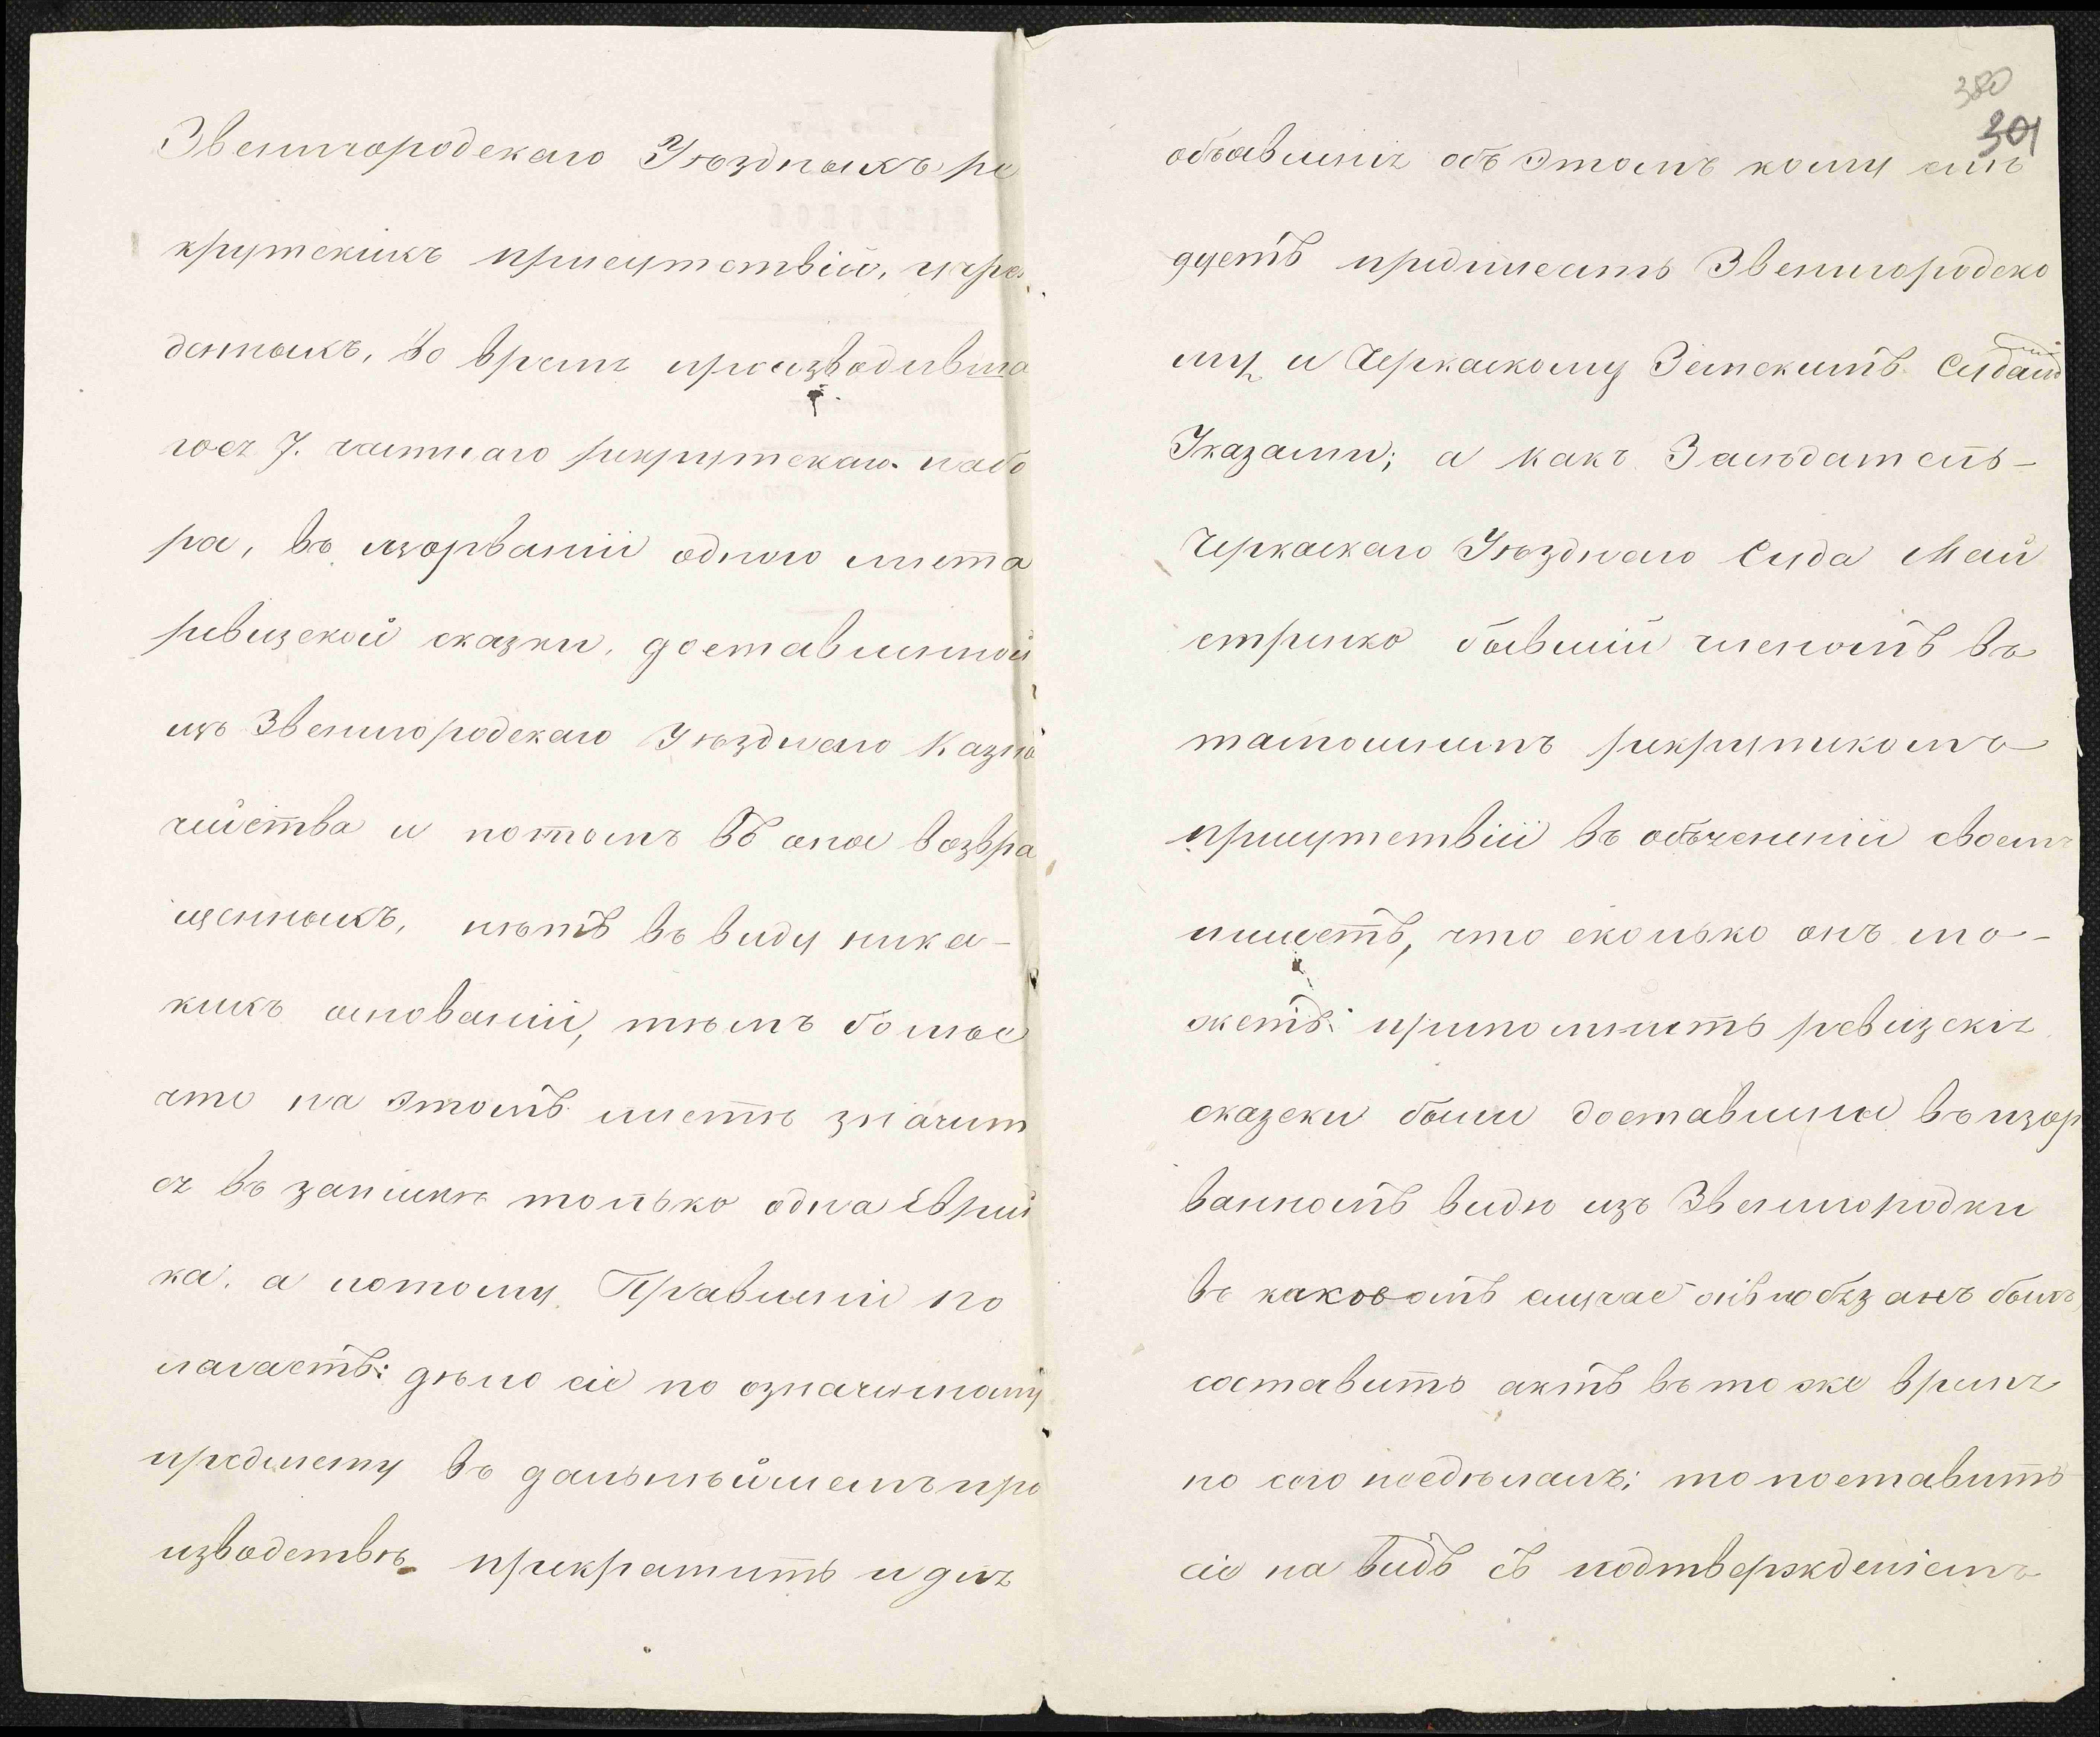 Звенигородскаго Уѣздныхъ ре
крутскихъ присутствій, учре
денныхъ, во время производивша
гося 7. частнаго рекрутскаго набо
ра, въ изорваніи одного листа
ревизской сказки, доставленной
изъ Звенигородскаго Уѣзднаго Казна
чейства и потомъ въ оное возвра
щенныхъ, нѣтъ въ виду ника-
кихъ основаній, тѣмъ болѣе
что на этомъ листѣ значит
ся въ запискѣ только одна Еврей
ка. а потому Правленіе по
лагаетъ: дѣло сіе по означенному
предмету въ дальнѣйшемъ про
изводствѣ прекратить и для
380
301
объявленія объ этомъ кому слѣ
дуетъ предписать Звенигородско
му и Черкаскому Земскимъ Судамъ
Указами; а какъ Засѣдатель-
Черкаскаго Уѣзднаго Суда Май
стренко бывшій членомъ въ
тамошнемъ рекрутскомъ
присутствіи въ объясненіи своемъ
пишетъ, что сколько онъ мо-
жетъ припомнить ревизскія
сказски были доставлены въ изор
ванномъ видѣ изъ Звенигородки
въ каковомъ случаѣ онъ обязанъ былъ
составить актъ въ то же время
но сего несдѣлалъ; то поставить
сіе на видъ съ подтвержденіемъ